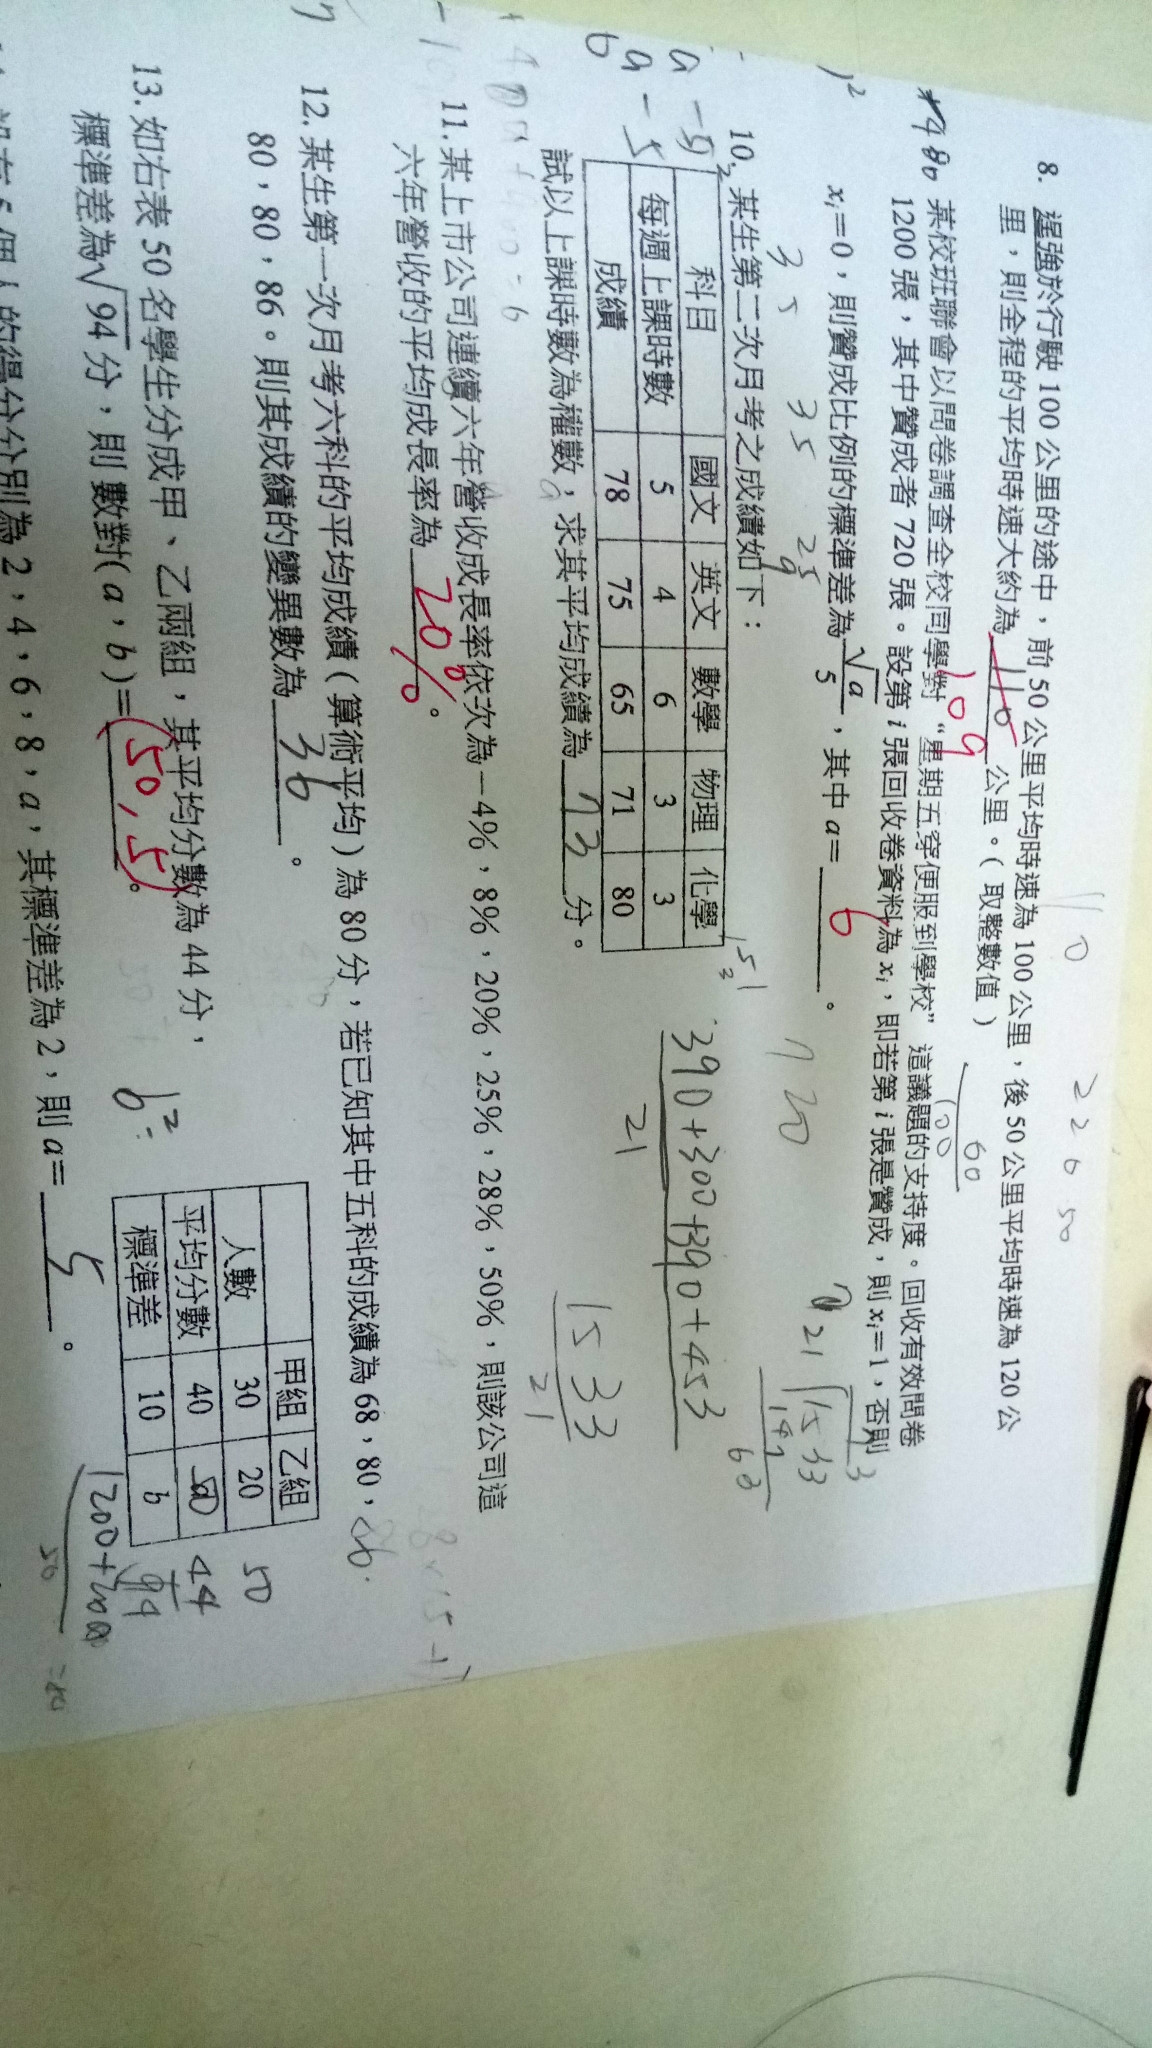 8. 逞強於行駛 100 公里的途中，前 50 公里平均時速為 100 公里，後 50 公里平均時速為 120 公
里，則全程的平均時速大約為 110 109 公里。( 取整數值 )
某校班聯會以問卷調查全校同學對“星期五穿便服到學校”這議題的支持度。回收有效問卷
1200 張，其中贊成者 720 張。設第 i 張回收卷資料為 xi，即若第 i 張是贊成，則 xi=1，否則
xi=0，則贊成比例的標準差為 √a/5，其中 a= 6 。
10. 某生第二次月考之成績如下：
科目 國文 英文 數學 物理 化學
每週上課時數 5 4 6 3 3
成績 78 75 65 71 80
試以上課時數為權數，求其平均成績為 73 分。
390+300+390+453
21
1533
21
11. 某上市公司連續六年營收成長率依次為－4%，8%，20%，25%，28%，50%，則該公司這
六年營收的平均成長率為 20% 。
12. 某生第一次月考六科的平均成績 ( 算術平均 ) 為 80 分，若已知其中五科的成績為 68，80，
80，80，86。則其成績的變異數為 36 。
13. 如右表 50 名學生分成甲、乙兩組，其平均分數為 44 分，
標準差為√94 分，則數對( a，b )= (50,5) 。
甲組 乙組
人數 30 20 50
平均分數 40 a 44
標準差 10 b √94
個人的得分分別為 2，4，6，8，a，其標準差為 2，則 a= 5 。